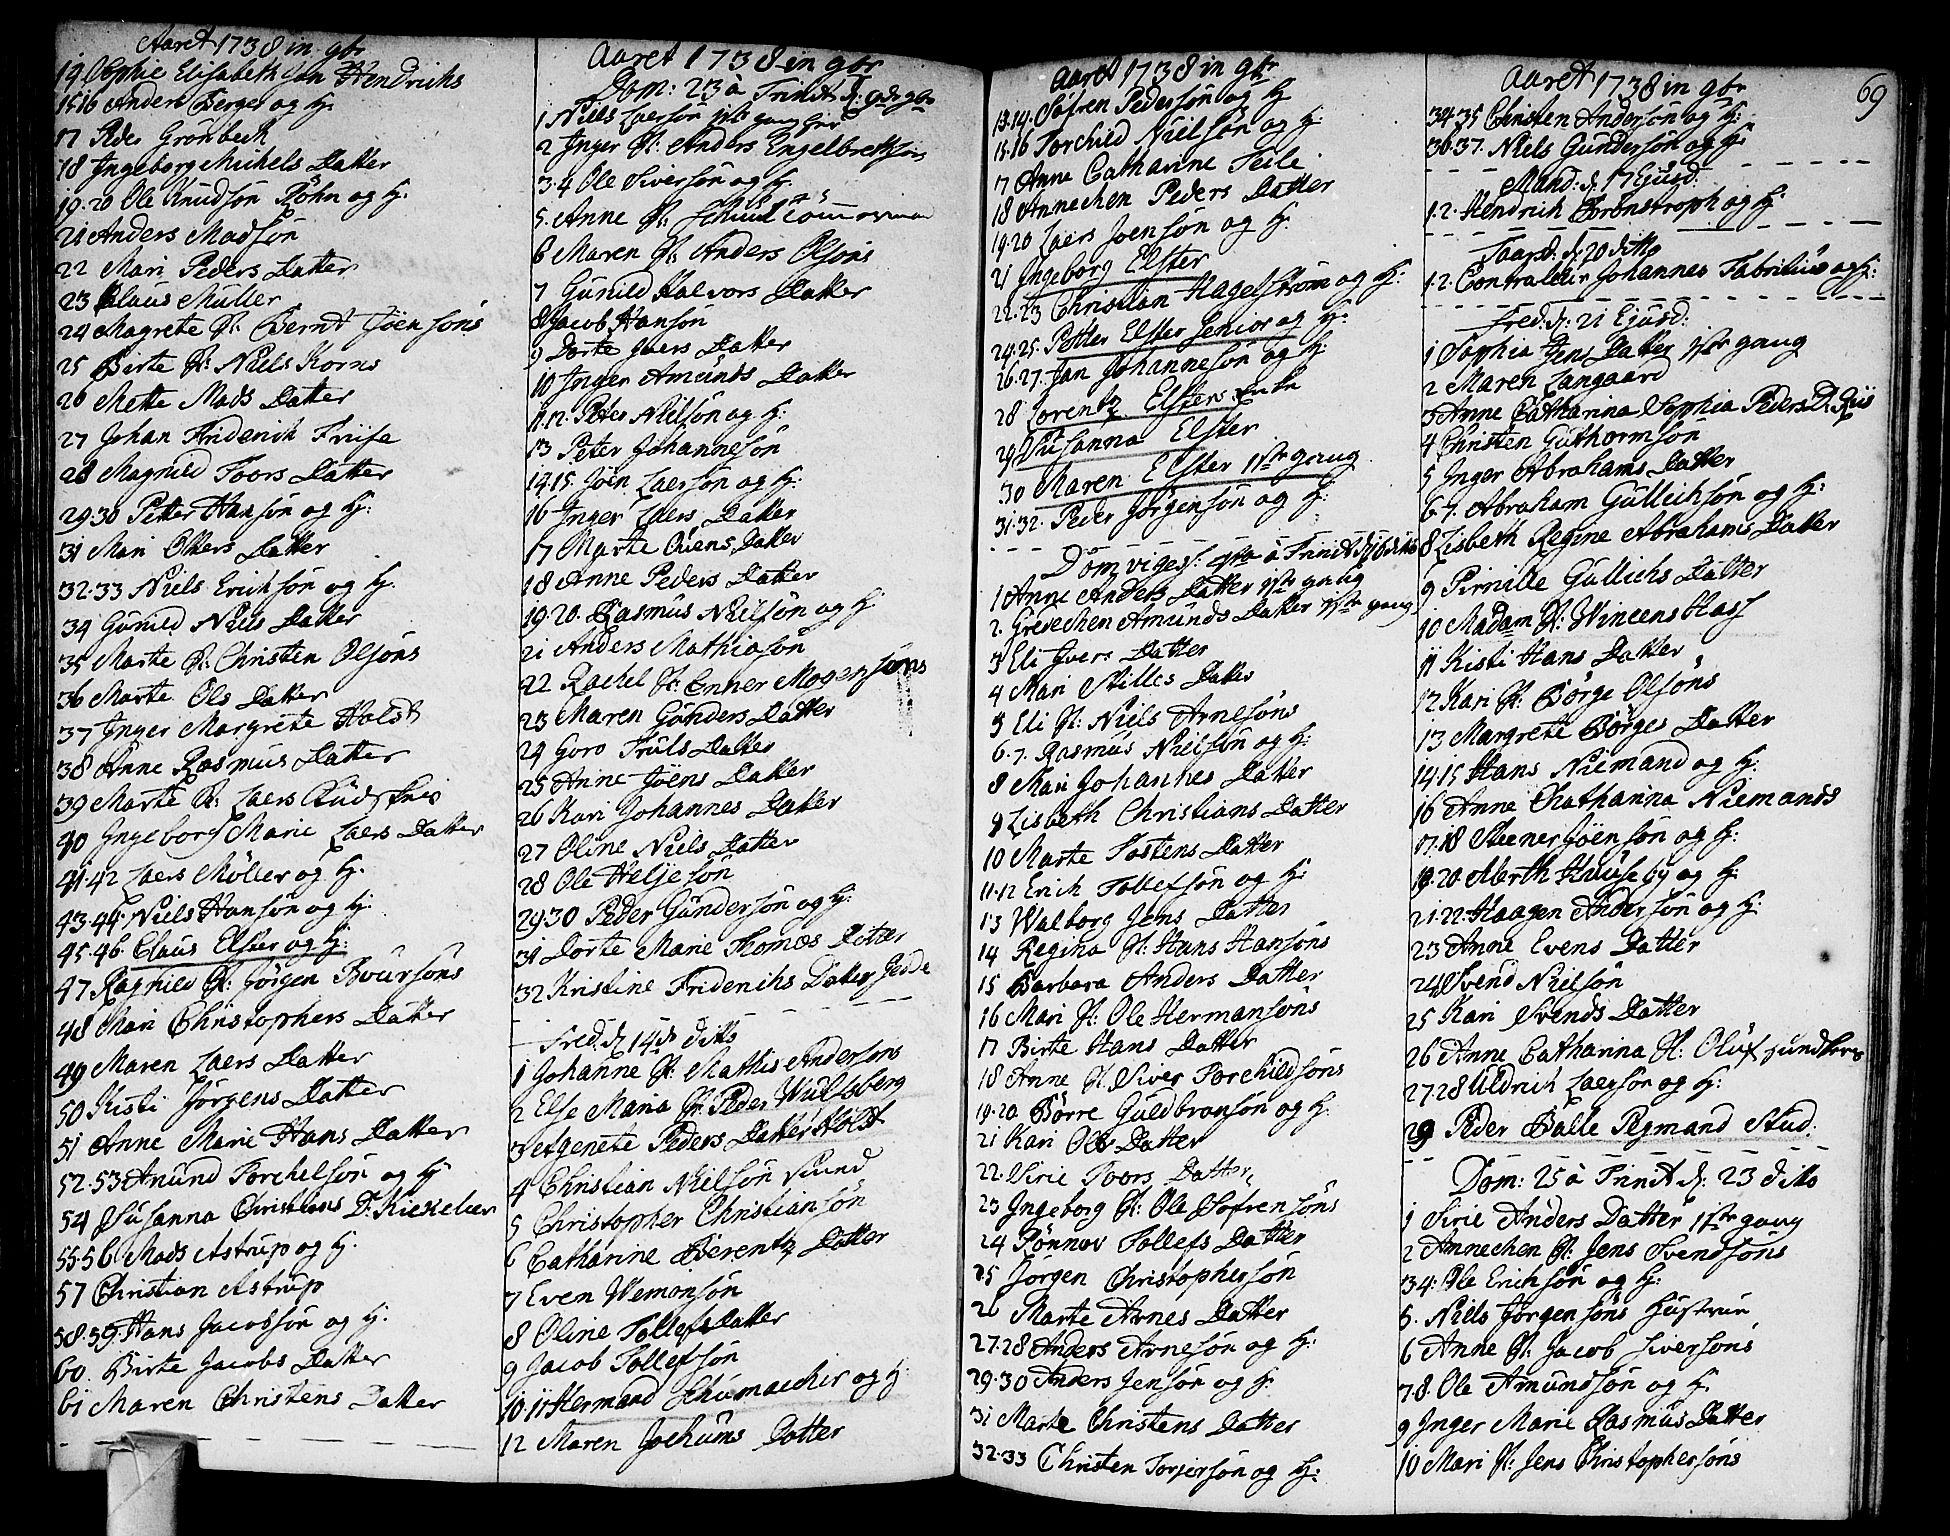 Aaret 1738 in 9br
14 Sophie Elisabeth Jan Hendrichs
15 16 Anders Berger og H:
17 Peder Grönbech
18 Ingeborg Michels Datter
19·20 Ole Knudsön Röhn og H:
21 Anders Madsön
22 Mari Peders Datter
23 Claus Müller
24 Magrete H: Bernt Jöensöns
25 Birte H: Niels Korns
26 Mette Mads Datter
27 Johan Friderich Friise
28 Magnild Toors Datter
29·30 Petter Hansön og H:
31 Mari Ollers Datter
32·33 Niels Erichsön og H:
34 Gunild Niels Datter
35 Marte H: Christen Olsöns
36 Marte Ols Datter
37 Inger Margrete Holst
38 Anne Rasmus Datter
39 Marte H: Laers
40 Ingeborg Marie Laers Datter
41·42 Laers Möller og H:
43·44 Niels Hansön og H:
45·46 Claus Elster og H:
47 Ragnild H: Jörgen Boursöns
48 Mari Christophers Datter
49 Maren Laers Datter
50 Kisti Jörgens Datter
51 Anne Marie Hans Datter
52·53 Amund Torchelsön og H:
54 Susanna Christians D:
55·56 Mads Astrup og H:
57 Christian Astrup
58·59 Hans Jacobsön og H:
60 Birte Jacobs Datter
61 Maren Christens Datter
Aaret 1738 in 9br
Dom: 23 à Trinit d:
1 Niels Laersön
2 Inger H: Anders Engelbretsöns
3·4 Ole Siversön og H:
5 Anne H:
6 Maren H: Anders Olsöns
7 Gunild Halvors Datter
8 Jacob Hansön
9 Dorte Joers Datter
10 Inger Amunds Datter
11·12 Peter Nielsön og H:
13 Peter Johannesön
14·15 Jöen Laersön og H:
16 Inger Laers Datter
17 Marte Ouens Datter
18 Anne Peders Datter
19·20 Rasmus Nielsön og H:
21 Anders Mathiasön
22 Rachel H: Enner Mogensöns
23 Maren Gunders Datter
24 Goro Truls Datter
25 Anne Jöens Datter
26 Kari Johannes Datter
27 Oline Niels Datter
28 Ole Heljesön
29·30 Peder Gundersön og H:
31 Dorte Marie Thomæs Datter
32 Kristine Friderichs Datter Jesde
Fred: d: 14 d: ditto
1 Johanne H: Mathis Andersöns
2 Else Maria H: Peder Wulsberg
3 Agenete Peders Datter Holst
4 Christian Nielsön Sund
5 Christopher Christiansön
6 Catharine Berentz Datter
7 Even Wemonsön
8 Oline Tollefs Datter
9 Jacob Tollefsön
10·11 Hermand Schumacher og H:
12 Maren Jochums Datter
Aaret 1738 in 9br
13·14 Söfren Pedersön og H:
15·16 Torchild Nielsön og H:
17 Anne Catharine Feile
18 Annechen Peders Datter
19·20 Laers Joensön og H:
21 Ingeborg Elster
22·23 Christian Hagelström og H:
24·25 Petter Elster Senior og H:
26·27 Jan Johannesön og H:
28 Lorentz Elsters Enke
29 Susanna Elster
30 Maren Elster 1ste gang
31·32 Peder Jörgensön og H:
Dom viges: 4ta à Trinit d: 16 ditto
1 Anne Anders Datter 1ste gang
2 Grevechen Amunds Datter 1ste gang
3 Eli Joers Datter
4 Mari Nilles Datter
5 Eli H: Niels Arnesöns
6·7 Rasmus Nielsön og H:
8 Mari Johannes Datter
9 Lisbeth Christians Datter
10 Marte Tostens Datter
11·12 Erich Tollefsön og H:
13 Walborg Jens Datter
14 Regina H: Hans Hansöns
15 Barbara Anders Datter
16 Mari H: Ole Hermansöns
17 Birte Hans Datter
18 Anne H: Siver Torchildsöns
19·20 Börre Guldbransön og H:
21 Kari Ols Datter
22 Sirie Toors Datter
23 Ingeborg H: Ole Söfrensöns
24 Rönnov Tollefs Datter
25 Jörgen Christophersön
26 Marte Arnes Datter
27·28 Anders Arnesön og H:
29·30 Anders Jensön og H:
31 Marte Christens Datter
32·33 Christen Torjersön og H:
Aaret 1738 in 9br
69
34·35 Christen Andersön og H:
36·37 Niels Gundersön og H:
Mand: d: 17 Ejusd:
1·2 Hendrich Bronstroph og H:
Taarsd: d: 20 ditto
1·2 Contralleur Johannes Fabritius og H:
Fred: d: 21 Ejusd:
1 Sophia Jens Datter 1ste gang
2 Maren Langaard
3 Anne Catharina Sophia Peders D: Riis
4 Christen Guthormsön
5 Inger Abrahams Datter
6·7 Abraham Gullichsön og H:
8 Lisbeth Regine Abrahams Datter
9 Pirnille Gullichs Datter
10 Madam H: Wincens Hass
11 Kisti Hans Datter
12 Kari H: Börge Olsöns
13 Margrete Börges Datter
14·15 Hans Niemand og H:
16 Anne Chatharina Niemands
17·18 Steener Jöensön og H:
19·20 Marth Huuseby og H:
21·22 Haagen Andersön og H:
23 Anne Evens Datter
24 Svend Nielsön
25 Kari Svends Datter
26 Anne Catharina H: Oluf
27·28 Uldrich Laersön og H:
29 Peder Balle Pegmand Stud:
Dom: 25 à Trinit d: 23 ditto
1 Sirie Anders Datter 1ste gang
2 Annechen H: Jens Svendsöns
3·4 Ole Erichsön og H:
5 Niels Jörgensöns Hustrue
6 Anne H: Jacob Siversöns
7·8 Ole Amundsön og H:
9 Inger Marie Rasmus Datter
10 Mari H: Jens Christophersöns